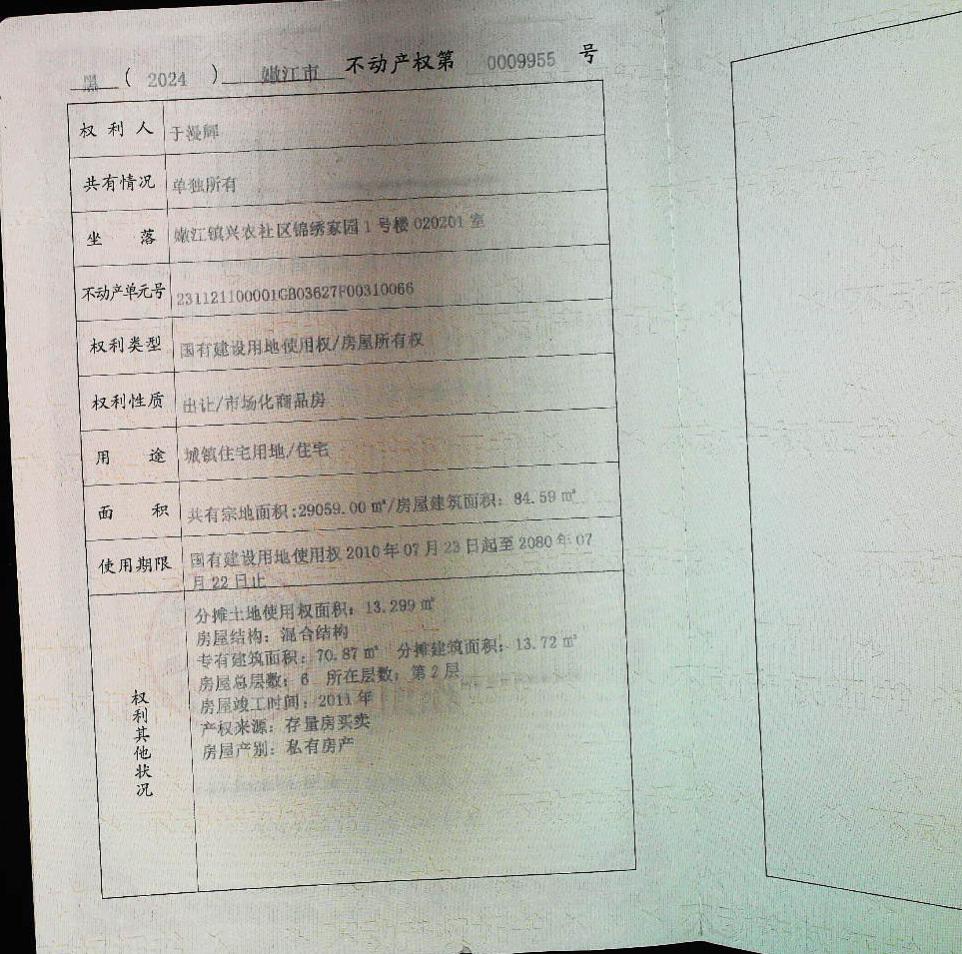 黑 ( 2024 ) 嫩江市 不动产权第 0009955 号
权利人 于漫辉
共有情况 单独所有
坐落 嫩江镇兴农社区锦绣家园1号楼020201室
不动产单元号 231121100001GB03627F00310066
权利类型 国有建设用地使用权/房屋所有权
权利性质 出让/市场化商品房
用途 城镇住宅用地/住宅
面积 共有宗地面积:29059.00㎡/房屋建筑面积:84.59㎡
使用期限 国有建设用地使用权2010年07月23日起至2080年07
月22日止
权利其他状况
分摊土地使用权面积:13.299㎡
房屋结构:混合结构
专有建筑面积:70.87㎡ 分摊建筑面积:13.72㎡
房屋总层数:6 所在层数:第2层
房屋竣工时间:2011年
产权来源:存量房买卖
房屋产别:私有房产